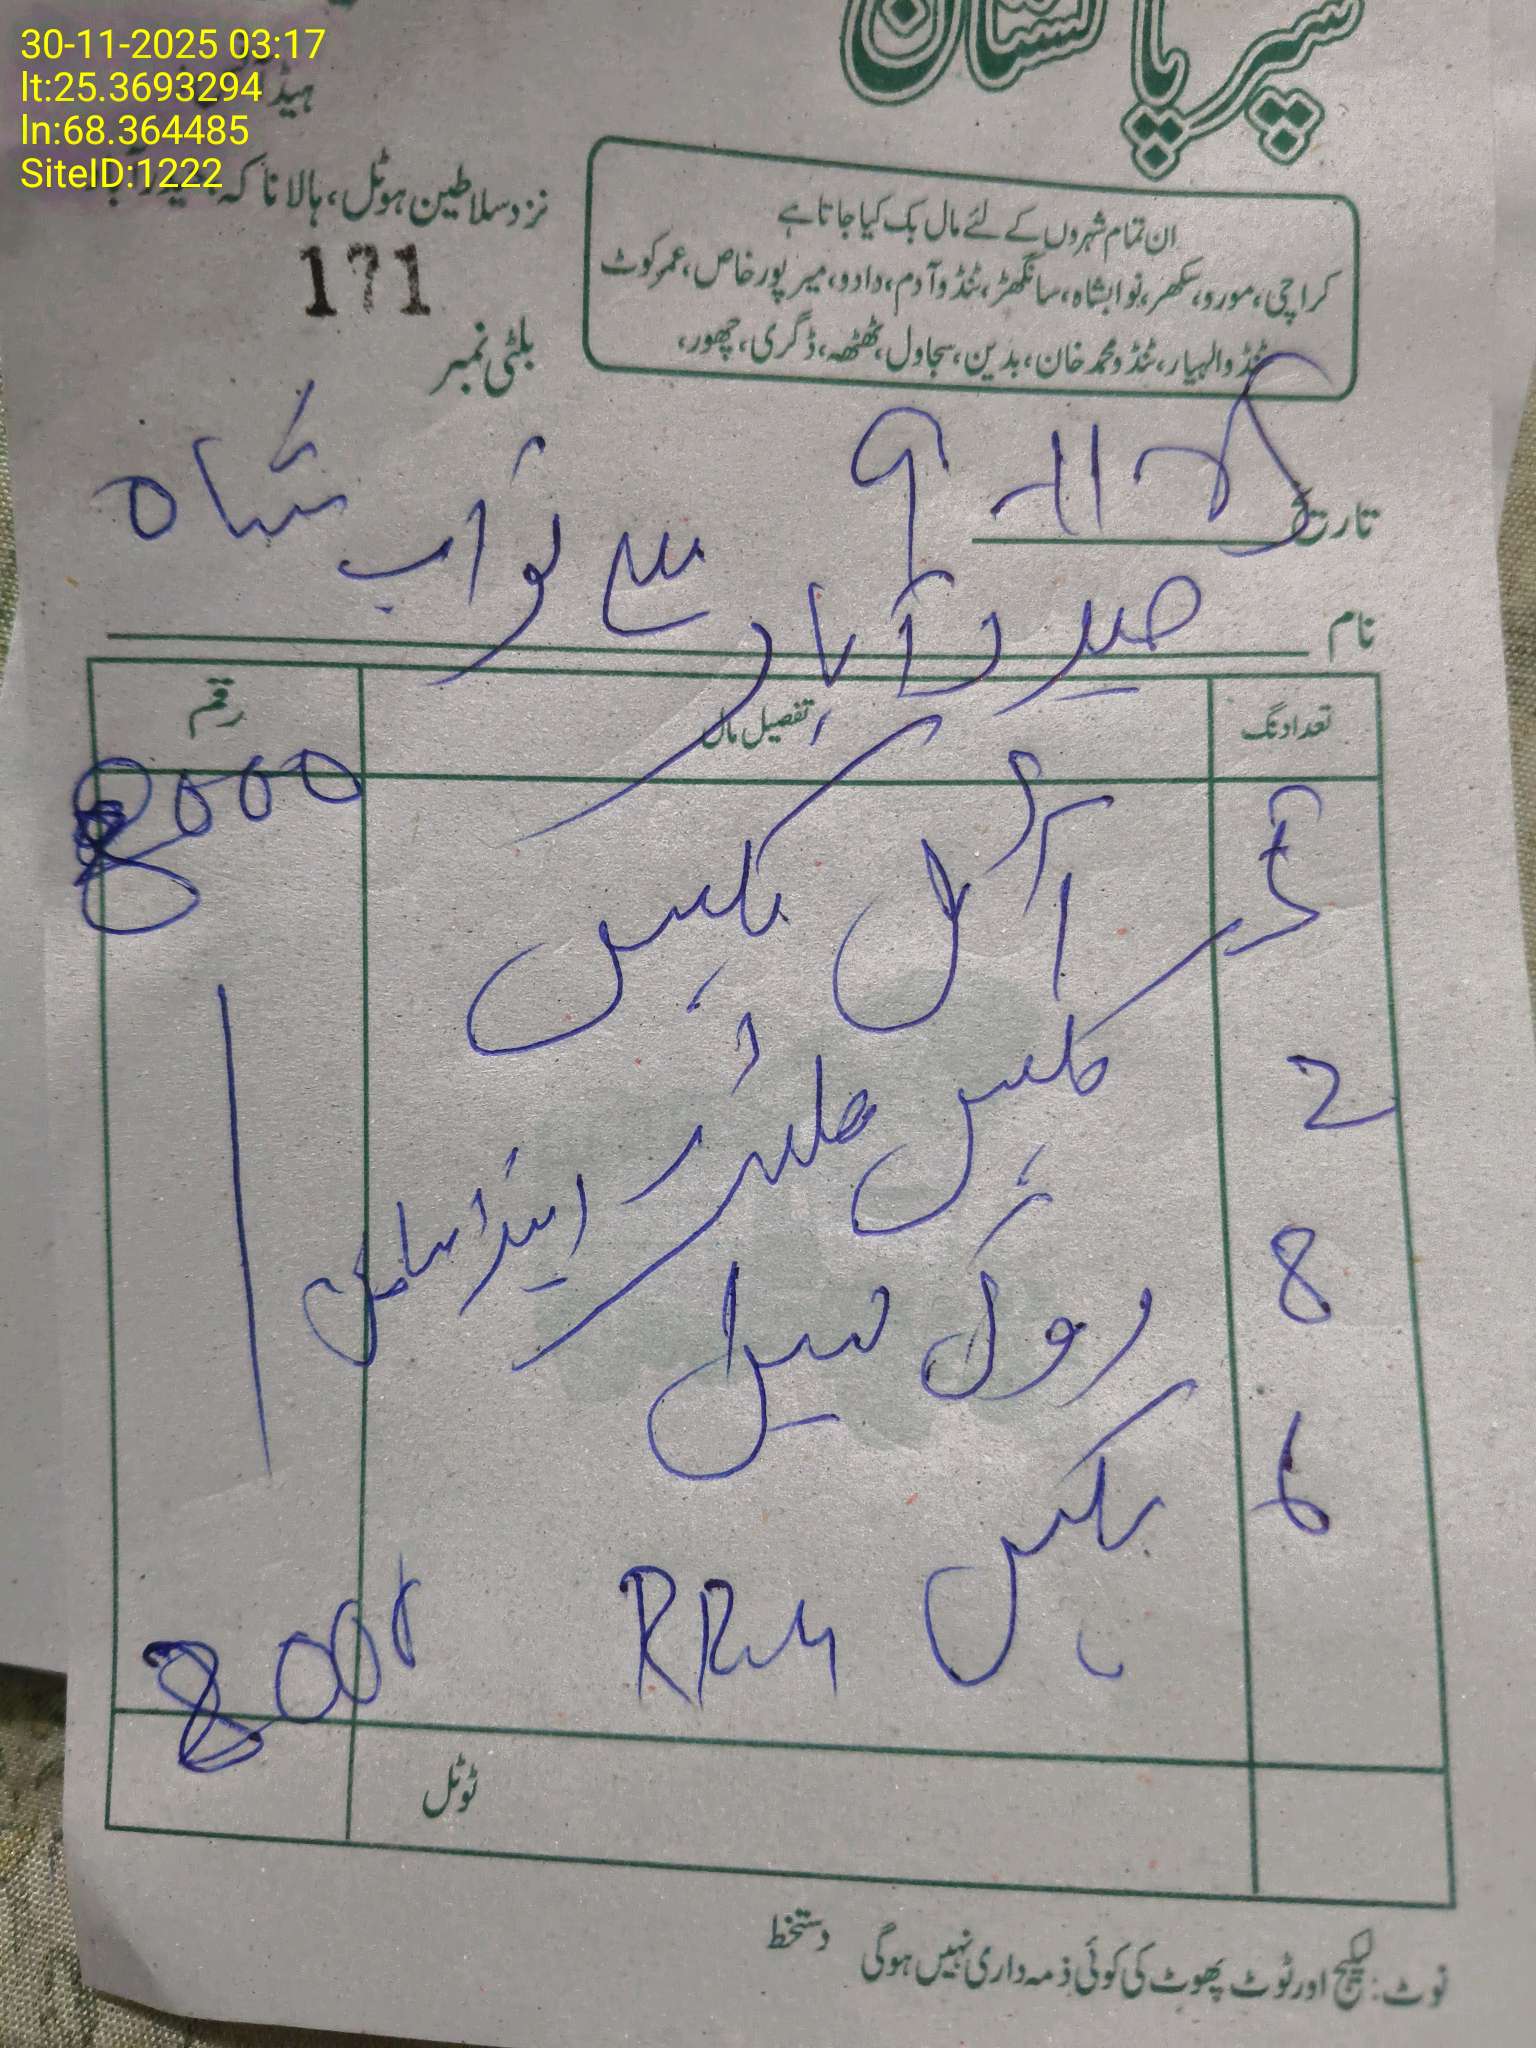 30-11-2025 03:17
lt:25.3693294
ln:68.364485
SiteID:1222
سپر پاکستان
نزد سلاطین ہوٹل، ہالا ناکہ
171
بلٹی نمبر
ان تمام شہروں کے لئے مال بک کیا جاتا ہے
کراچی، مورو، سکھر، نوابشاہ، سانگھڑ، ٹنڈوآدم، دادو، میرپورخاص، عمرکوٹ
ٹنڈوالہیار، ٹنڈومحمدخان، بدین، سجاول، ٹھٹھہ، ڈگری، چھور،
تاریخ
نام حیدرآباد سے نواب شاہ
تعدادنگ تفصیل مال رقم
آئل بکس 8000
2 بکس
8 رول سیل
6 بکس
8000
ٹوٹل
نوٹ: لیکج اور ٹوٹ پھوٹ کی کوئی ذمہ داری نہیں ہوگی دستخط